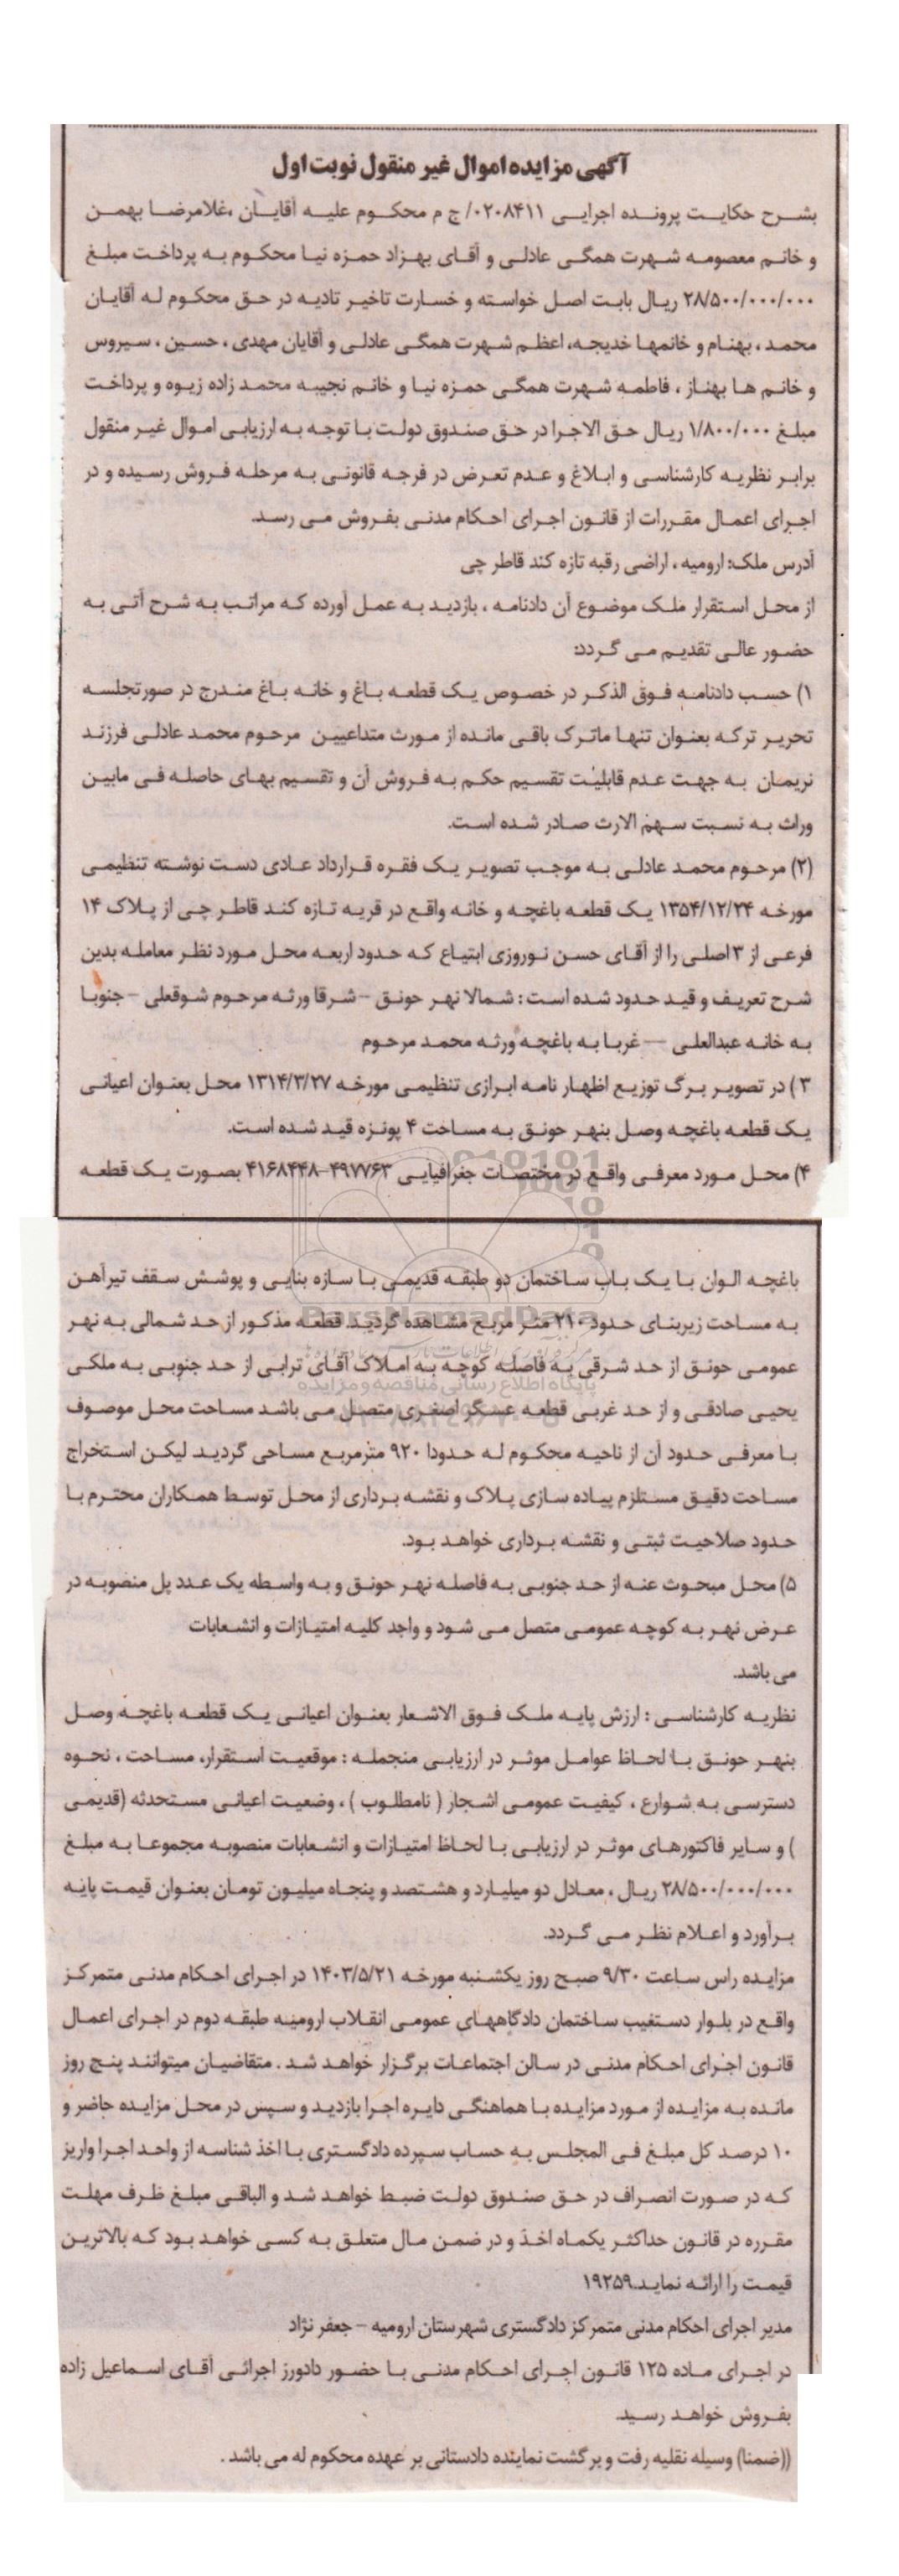 آگهی مزایده اموال غیر منقول نوبت اول
بشرح حکایت پرونده اجرایی ۰۲۰۸۴۱۱/ ج م محکوم علیه آقایان ،غلامرضا بهمن
و خانم معصومه شهرت همگی عادلی و آقای بهزاد حمزه نیا محکوم به پرداخت مبلغ
۲۸/۵۰۰/۰۰۰/۰۰۰ ریال بابت اصل خواسته و خسارت تاخیر تادیه در حق محکوم له آقایان
محمد ، بهنام و خانمها خدیجه، اعظم شهرت همگی عادلی و آقایان مهدی ، حسین ، سیروس
و خانم ها بهناز ، فاطمه شهرت همگی حمزه نیا و خانم نجیبه محمد زاده زیوه و پرداخت
مبلغ ۱/۸۰۰/۰۰۰ ریال حق الاجرا در حق صندوق دولت با توجه به ارزیابی اموال غیر منقول
برابر نظریه کارشناسی و ابلاغ و عدم تعرض در فرجه قانونی به مرحله فروش رسیده و در
اجرای اعمال مقررات از قانون اجرای احکام مدنی بفروش می رسد.
آدرس ملک: ارومیه ، اراضی رقبه تازه کند قاطر چی
از محل استقرار ملک موضوع آن دادنامه ، بازدید به عمل آورده که مراتب به شرح آتی به
حضور عالی تقدیم می گردد:
۱) حسب دادنامه فوق الذکر در خصوص یک قطعه باغ و خانه باغ مندرج در صورتجلسه
تحریر ترکه بعنوان تنها ماترک باقی مانده از مورث متداعیین مرحوم محمد عادلی فرزند
نریمان به جهت عدم قابلیت تقسیم حکم به فروش آن و تقسیم بهای حاصله فی مابین
وراث به نسبت سهم الارث صادر شده است.
(۲) مرحوم محمد عادلی به موجب تصویر یک فقره قرارداد عادی دست نوشته تنظیمی
مورخه ۱۳۵۴/۱۲/۲۴ یک قطعه باغچه و خانه واقع در قریه تازه کند قاطر چی از پلاک ۱۴
فرعی از ۳ اصلی را از آقای حسن نوروزی ابتیاع که حدود اربعه محل مورد نظر معامله بدین
شرح تعریف و قید حدود شده است : شمالا نهر حونق - شرقا ورثه مرحوم شوقعلی - جنوبا
به خانه عبدالعلی — غربا به باغچه ورثه محمد مرحوم
۳ ) در تصویر برگ توزیع اظهار نامه ابرازی تنظیمی مورخه ۱۳۱۴/۳/۲۷ محل بعنوان اعیانی
یک قطعه باغچه وصل بنهر حونق به مساحت ۴ پونزه قید شده است.
۴) محل مورد معرفی واقع در مختصات جغرافیایی ۴۹۷۷۶۳-۴۱۶۸۴۴۸ بصورت یک قطعه
باغچه الوان با یک باب ساختمان دو طبقه قدیمی با سازه بنایی و پوشش سقف تیرآهن
به مساحت زیربنای حدود ۲۱۰ متر مربع مشاهده گردید. قطعه مذکور از حد شمالی به نهر
عمومی حونق از حد شرقی به فاصله کوچه به املاک آقای ترابی از حد جنوبی به ملکی
یحیی صادقی و از حد غربی قطعه عسگر اصغری متصل می باشد مساحت محل موصوف
با معرفی حدود آن از ناحیه محکوم له حدودا ۹۲۰ مترمربع مساحی گردید لیکن استخراج
مساحت دقیق مستلزم پیاده سازی پلاک و نقشه برداری از محل توسط همکاران محترم با
حدود صلاحیت ثبتی و نقشه برداری خواهد بود.
۵) محل مبحوث عنه از حد جنوبی به فاصله نهر حونق و به واسطه یک عدد پل منصوبه در
عرض نهر به کوچه عمومی متصل می شود و واجد کلیه امتیازات و انشعابات
می باشد.
نظریه کارشناسی : ارزش پایه ملک فوق الاشعار بعنوان اعیانی یک قطعه باغچه وصل
بنهر حونق با لحاظ عوامل موثر در ارزیابی منجمله : موقعیت استقرار، مساحت ، نحوه
دسترسی به شوارع ، کیفیت عمومی اشجار ( نامطلوب ) ، وضعیت اعیانی مستحدثه (قدیمی
) و سایر فاکتورهای موثر در ارزیابی با لحاظ امتیازات و انشعابات منصوبه مجموعا به مبلغ
۲۸/۵۰۰/۰۰۰/۰۰۰ ریال ، معادل دو میلیارد و هشتصد و پنجاه میلیون تومان بعنوان قیمت پایه
برآورد و اعلام نظر می گردد.
مزایده راس ساعت ۹/۳۰ صبح روز یکشنبه مورخه ۱۴۰۳/۵/۲۱ در اجرای احکام مدنی متمرکز
واقع در بلوار دستغیب ساختمان دادگاههای عمومی انقلاب ارومیه طبقه دوم در اجرای اعمال
قانون اجرای احکام مدنی در سالن اجتماعات برگزار خواهد شد . متقاضیان میتوانند پنج روز
مانده به مزایده از مورد مزایده با هماهنگی دایره اجرا بازدید و سپس در محل مزایده حاضر و
۱۰ درصد کل مبلغ فی المجلس به حساب سپرده دادگستری با اخذ شناسه از واحد اجرا واریز
که در صورت انصراف در حق صندوق دولت ضبط خواهد شد و الباقی مبلغ ظرف مهلت
مقرره در قانون حداکثر یکماه اخذ و در ضمن مال متعلق به کسی خواهد بود که بالاترین
قیمت را ارائه نماید.۱۹۲۵۹
مدیر اجرای احکام مدنی متمرکز دادگستری شهرستان ارومیه - جعفر نژاد
در اجرای ماده ۱۲۵ قانون اجرای احکام مدنی با حضور دادورز اجرائی آقای اسماعیل زاده
بفروش خواهد رسید.
((ضمنا) وسیله نقلیه رفت و برگشت نماینده دادستانی بر عهده محکوم له می باشد .
ParsNamadData
پایگاه اطلاع رسانی مناقصه و مزایده